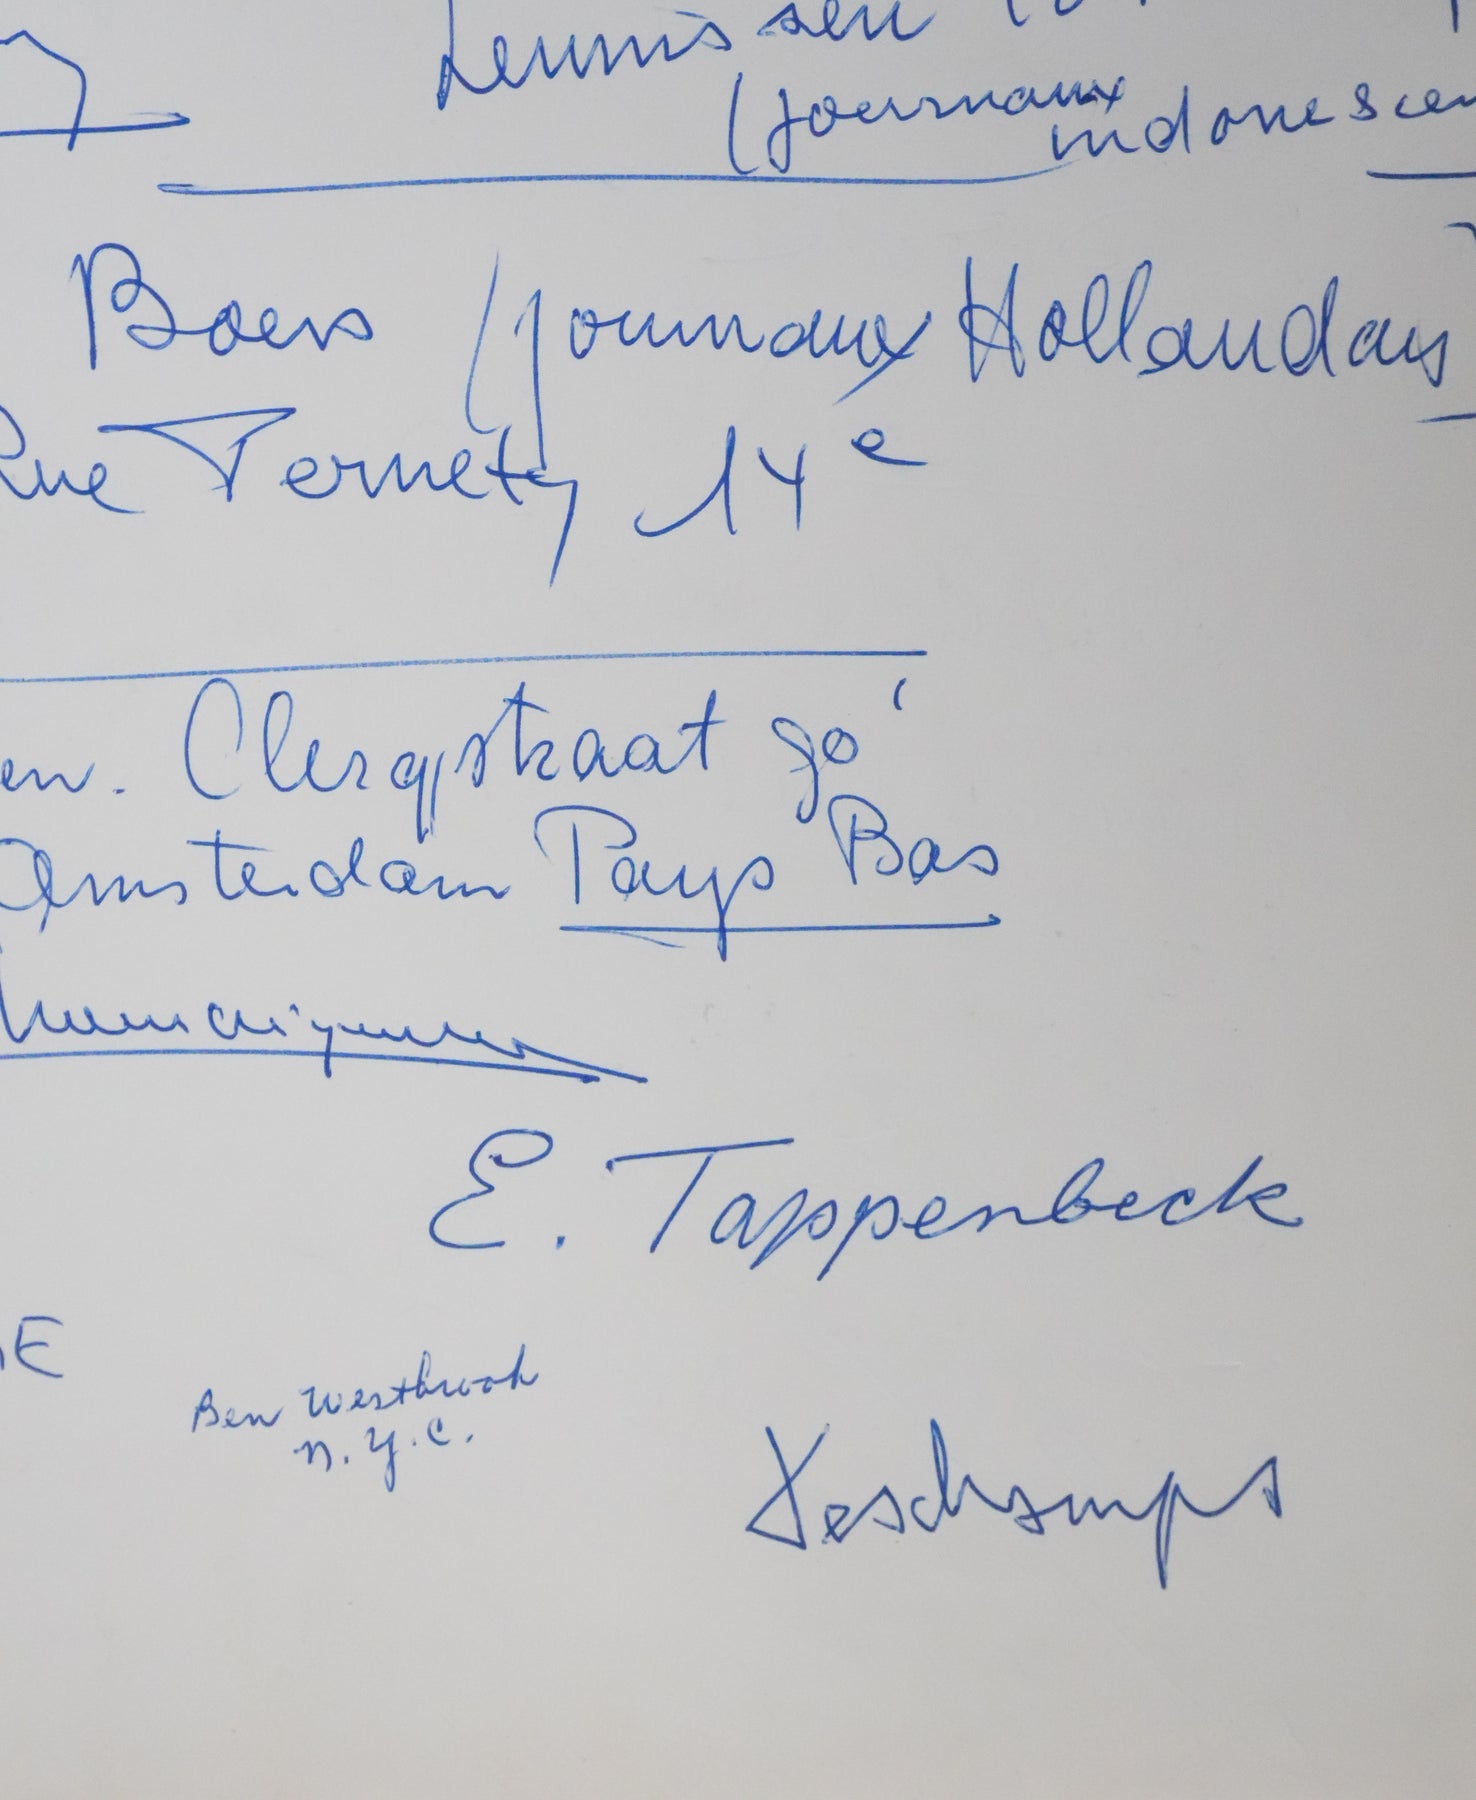 (journaux
Boers (journaux Hollandais
Rue Pernety 14e
Clerqstraat 90'
Amsterdam Pays Bas
E. Tappenbeck
Ben Westbrook
N.Y.C.
Deschamps